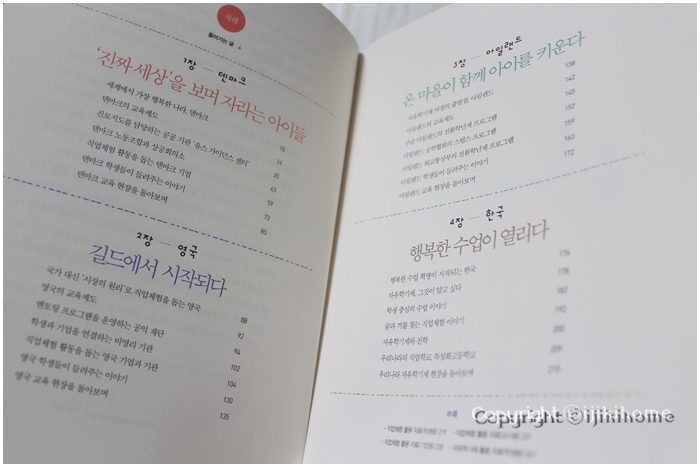 차례
들어가는 글 4
1장 — 덴마크
'진짜 세상'을 보며 자라는 아이들
세계에서 가장 행복한 나라, 덴마크 10
덴마크의 교육제도 14
진로지도를 담당하는 공공 기관 '유스 가이던스 센터' 20
덴마크 노동조합과 상공회의소 43
직업체험 활동을 돕는 덴마크 기업 59
덴마크 학생들이 들려주는 이야기 73
덴마크 교육 현장을 돌아보며 85
2장 — 영국
길드에서 시작되다
국가 대신 '시장의 원리'로 직업체험을 돕는 영국 88
영국의 교육제도 92
멘토링 프로그램을 운영하는 공익 재단 94
학생과 기업을 연결하는 비영리 기관 102
직업체험 활동을 돕는 영국 기업과 기관 104
영국 학생들이 들려주는 이야기 130
영국 교육 현장을 돌아보며 135
3장 — 아일랜드
온 마을이 함께 아이를 키운다
자유학기제 여정의 출발점, 아일랜드 138
아일랜드의 교육제도 142
구글 아일랜드의 전환학년제 프로그램 145
아일랜드 공학협회의 스텝스 프로그램 152
아일랜드 외교통상부의 전환학년제 프로그램 159
아일랜드 학생들이 들려주는 이야기 163
아일랜드 교육 현장을 돌아보며 172
4장 — 한국
행복한 수업이 열리다
행복한 수업 혁명이 시작되는 한국 174
자유학기제, 그것이 알고 싶다 178
학생 중심의 수업 이야기 182
꿈과 끼를 찾는 직업체험 이야기 192
자유학기제와 진학 200
우리나라의 직업학교, 특성화고등학교 209
우리나라 자유학기제 현장을 돌아보며
부록
Copyright ⓒ ijikihome